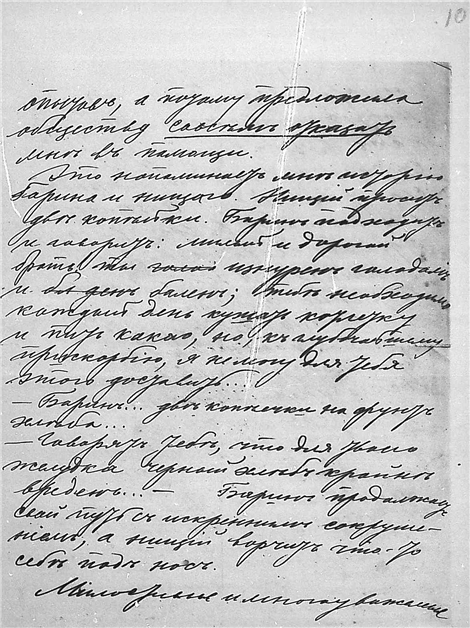 10
опытовъ, а потому предложила
обществу совсѣмъ отказать
мнѣ въ помощи.
Это напоминаетъ мнѣ исторію
барина и нищаго. Нищій проситъ
двѣ копѣйки. Баринъ подходитъ
и говоритъ: милый и дорогой
братъ, ты изнуренъ голодомъ
и боленъ; тебѣ необходимо
каждый день кушать курочку
и пить какао, но, къ глубочайшему
прискорбію, я не могу для тебя
этого доставить...
— Баринъ... двѣ копѣечки на фунтъ
хлѣба...
— Говорятъ тебѣ, что для твоего
желудка черный хлѣбъ крайне
вреденъ... — Баринъ продолжаетъ
свой путь съ искреннимъ сокруше-
ніемъ, а нищій ворчитъ что-то
себѣ подъ носъ.
Милостивые и многоуважаемые